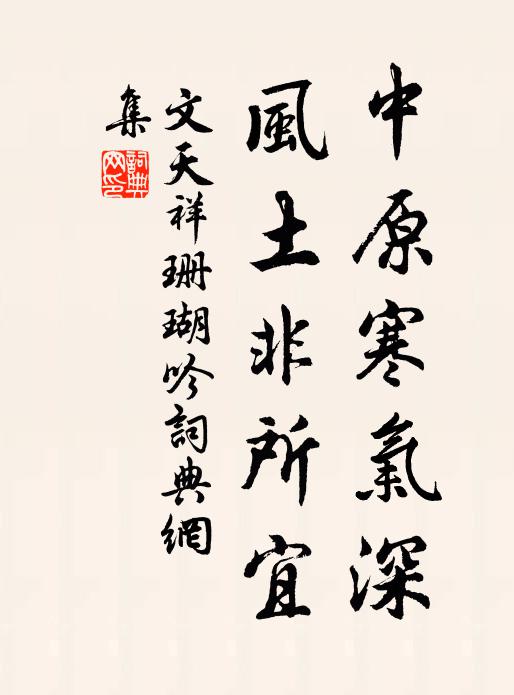 中原寒氣深
風土非所宜
文天祥珊瑚吟詞典網
集
詞典網印